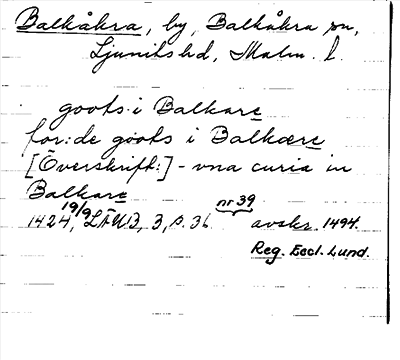 Balkåkra, by, Balkåkra sn,
Ljunits hd, Malm. l.
goots i Balkare
for:de goots i Balkære
[Överskrift:] - vna curia in
Balkare
1424 19/9, LÄUB, 3, s. 36 nr 39 avskr. 1494.
Reg. Eccl. Lund.